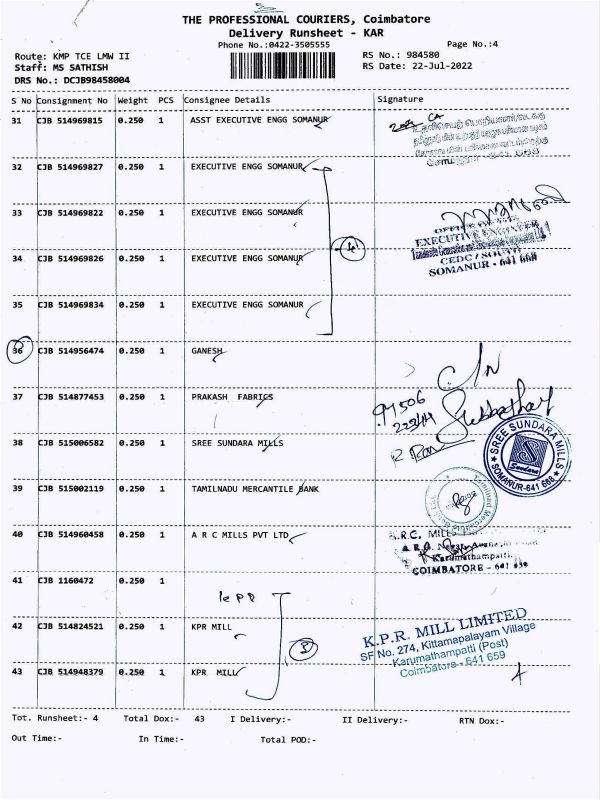 THE PROFESSIONAL COURIERS, Coimbatore
Delivery Runsheet - KAR
Phone No.:0422-3505555
Page No.:4
Route: KMP TCE LMW II
RS No.: 984580
Staff: MS SATHISH
RS Date: 22-Jul-2022
DRS No.: DCJB98458004
S No Consignment No Weight PCS Consignee Details Signature
31 CJB 514969815 0.250 1 ASST EXECUTIVE ENGG SOMANUR
32 CJB 514969827 0.250 1 EXECUTIVE ENGG SOMANUR
33 CJB 514969822 0.250 1 EXECUTIVE ENGG SOMANUR
EXECUTIVE ENGINEER
34 CJB 514969826 0.250 1 EXECUTIVE ENGG SOMANUR
4
CEDC / SOUTH
SOMANUR - 641 668
35 CJB 514969834 0.250 1 EXECUTIVE ENGG SOMANUR
36 CJB 514956474 0.250 1 GANESH
37 CJB 514877453 0.250 1 PRAKASH FABRICS
38 CJB 515006582 0.250 1 SREE SUNDARA MILLS
SREE SUNDARA MILLS
S
Sundara
SOMANUR-641 668
39 CJB 515002119 0.250 1 TAMILNADU MERCANTILE BANK
40 CJB 514960458 0.250 1 A R C MILLS PVT LTD
Karumathampatti
COIMBATORE - 641
41 CJB 1160472 0.250 1
42 CJB 514824521 0.250 1 KPR MILL
3
K.P.R. MILL LIMITED
SF No. 274, Kittamapalayam Village
Karumathampatti (Post)
Coimbatore - 641 659
43 CJB 514948379 0.250 1 KPR MILL
Tot. Runsheet:- 4 Total Dox:- 43 I Delivery:- II Delivery:- RTN Dox:-
Out Time:- In Time:- Total POD:-